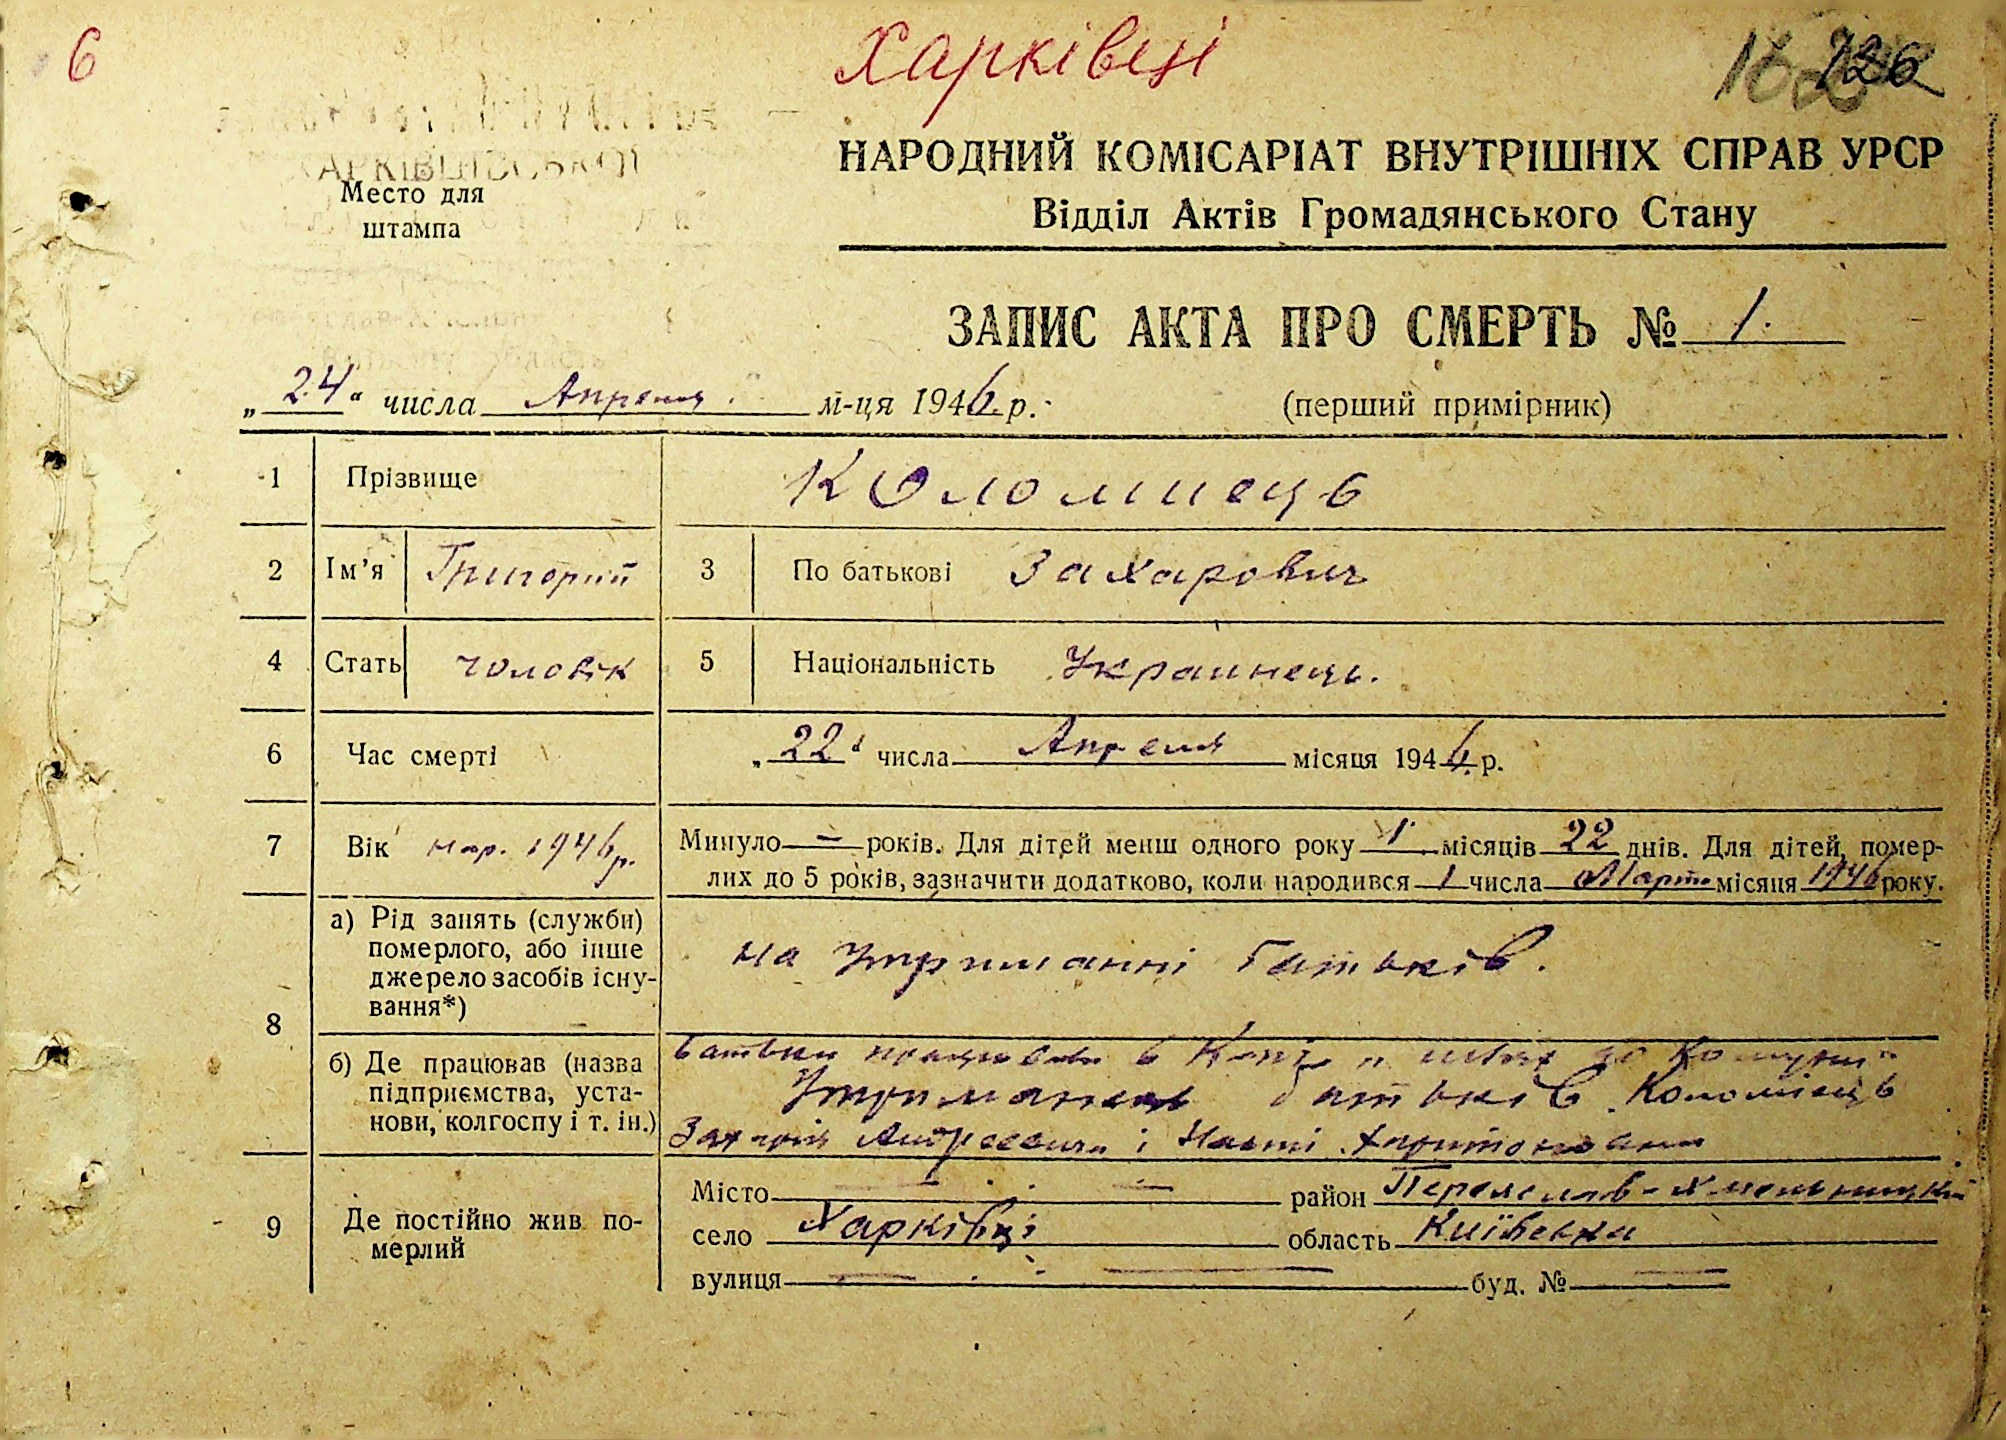 6
Харківці
226
НАРОДНИЙ КОМІСАРІАТ ВНУТРІШНІХ СПРАВ УРСР
Відділ Актів Громадянського Стану
Место для
штампа
ЗАПИС АКТА ПРО СМЕРТЬ № 1.
„24“ числа Апреля м-ця 1946 р. (перший примірник)
1 Прізвище Коломиець
2 Ім'я Григорий 3 По батькові Захарович
4 Стать чоловік 5 Національність Украинець.
6 Час смерті „22“ числа Апреля місяця 1946 р.
7 Вік нар. 1946 р. Минуло — років. Для дітей менш одного року 1 місяців 22 днів. Для дітей, помер-
лих до 5 років, зазначити додатково, коли народився 1 числа Марта місяця 1946 року.
8 а) Рід занять (служби)
померлого, або інше
джерело засобів існу-
вання*)
на утриманні батьків.
б) Де працював (назва
підприємства, уста-
нови, колгоспу і т. ін.)
батьки в шлях до Комуни
Утриманець батьків Коломієць
Андреевича і Насті Харитоновни
9 Де постійно жив по-
мерлий
Місто — район Переяслав-Хмельницкий
село Харківці область Київська
вулиця — буд. № —